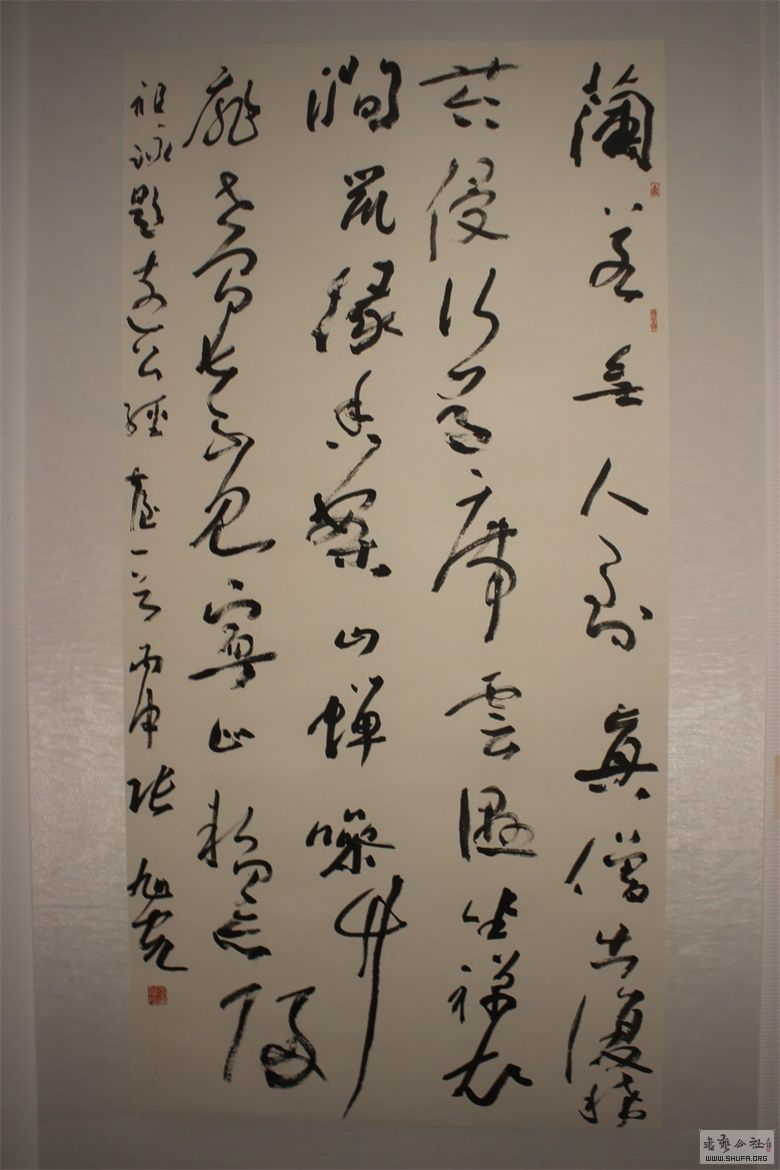 蘭若無人到真僧出復稀
苔侵行道席雲濕坐禪衣
澗鼠緣香案山蟬噪竹
扉世間長不見寧止暫忘歸
祖詠題遠公經臺一首丙申張旭光
書藝公社
WWW.SHUFA.ORG